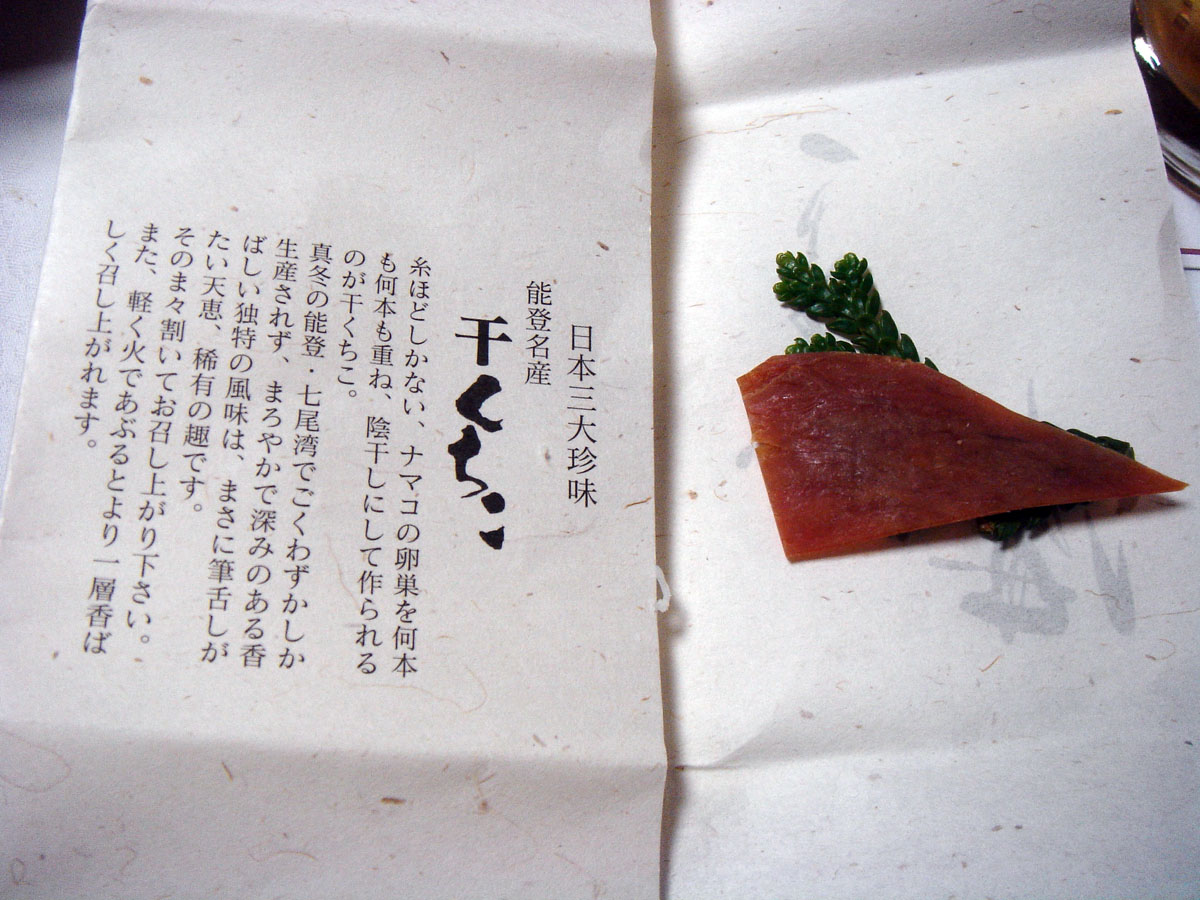 日本三大珍味
能登名産
干くちこ
糸ほどしかない、ナマコの卵巣を何本
も何本も重ね、陰干しにして作られる
のが干くちこ。
真冬の能登・七尾湾でごくわずかしか
生産されず、まろやかで深みのある香
ばしい独特の風味は、まさに筆舌しが
たい天恵、稀有の趣です。
そのまま割いてお召し上がり下さい。
また、軽く火であぶるとより一層香ば
しく召し上がれます。